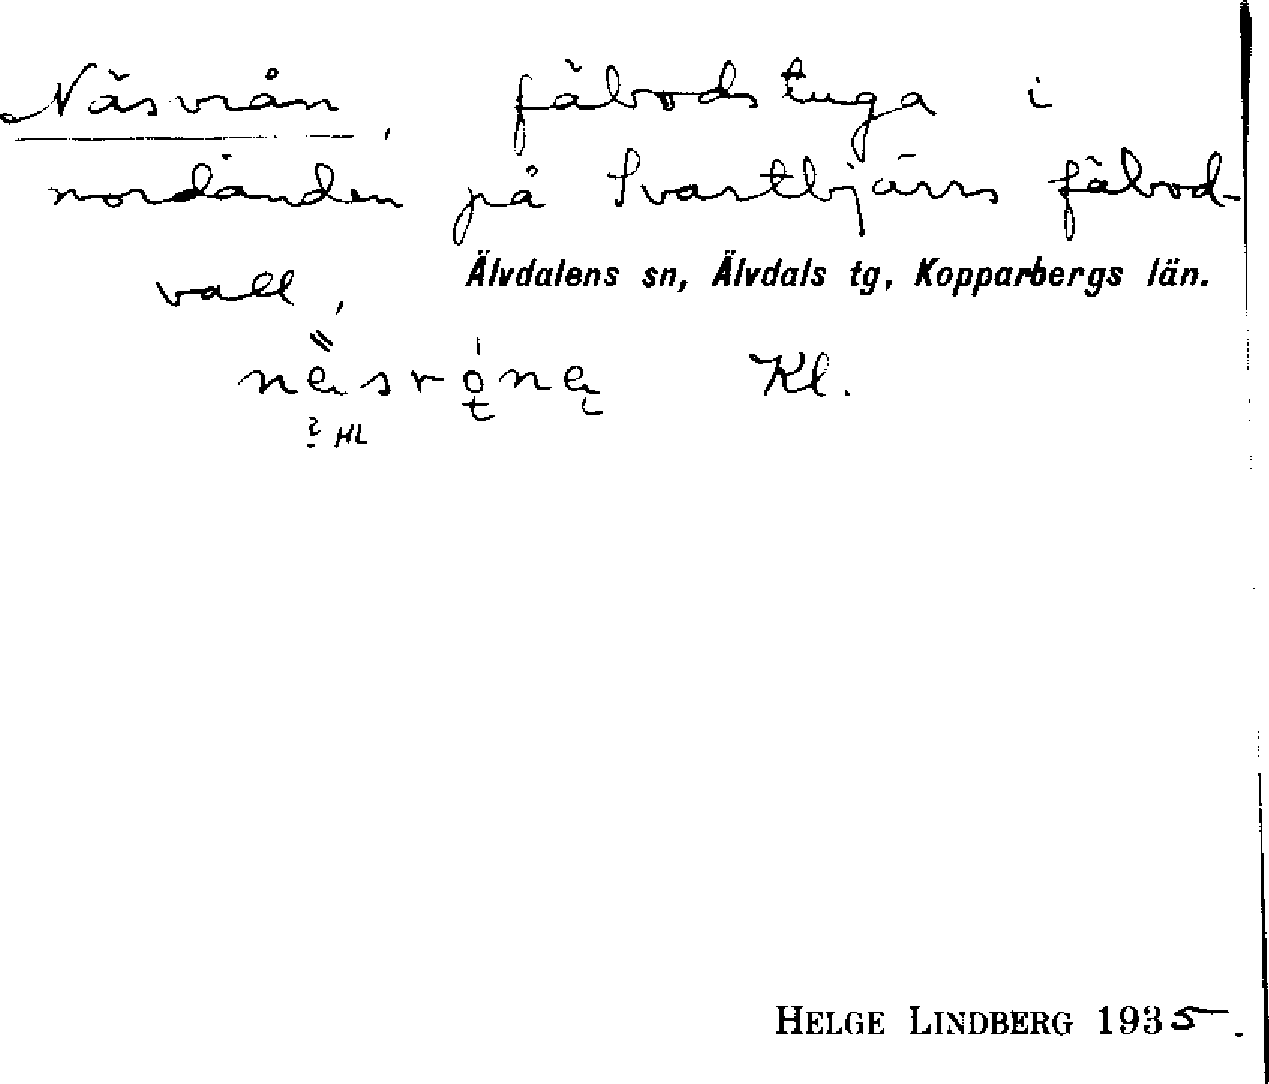 Näsvrån, fäbodstuga i
nordänden på Svartbjärns fäbod-
vall,
Älvdalens sn, Älvdals tg, Kopparbergs län.
Kl.
HL
HELGE LINDBERG 1935.